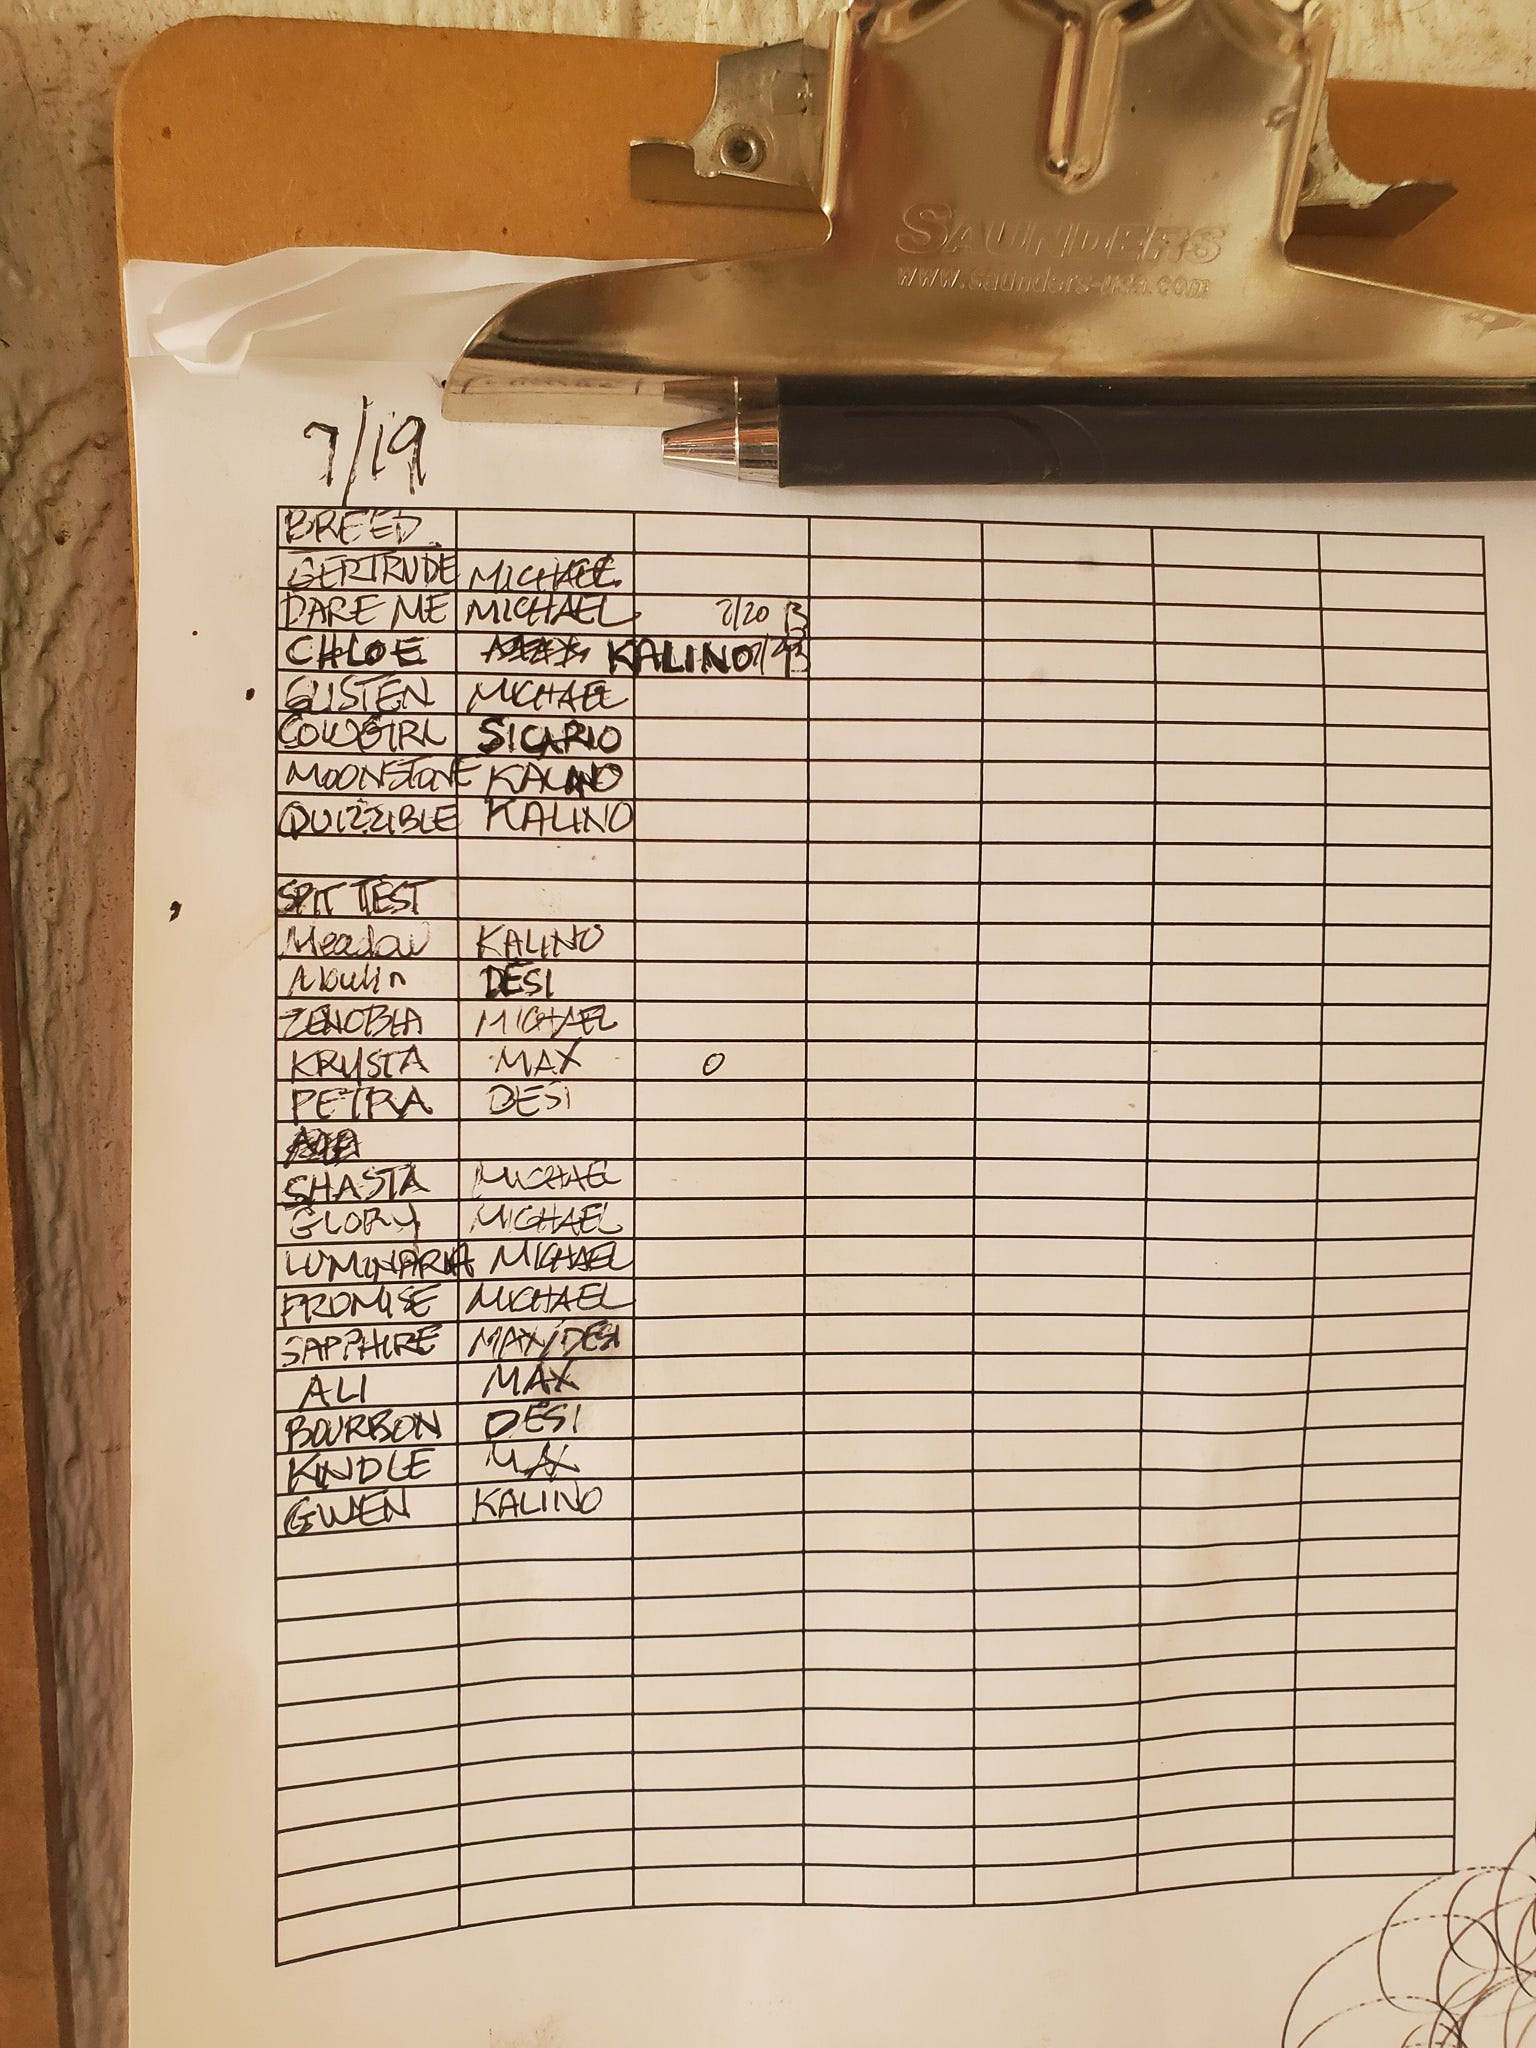 SAUNDERS
www.saunders-usa.com
7/19
BREED
GERTRUDE MICHAEL
DARE ME MICHAEL 7/20 B
CHLOE KALINO
GLISTEN MICHAEL
COWGIRL SICARIO
MOONSTONE KALINO
QUIZZIBLE KALINO
SPIT TEST
Meadow KALINO
DESI
ZENOBIA MICHAEL
KRYSTA MAX O
PETRA DESI
SHASTA MICHAEL
GLORY MICHAEL
LUMINARIA MICHAEL
PROMISE MICHAEL
SAPPHIRE MAX/DESI
ALI MAX
BOURBON DESI
KINDLE MAX
GWEN KALINO